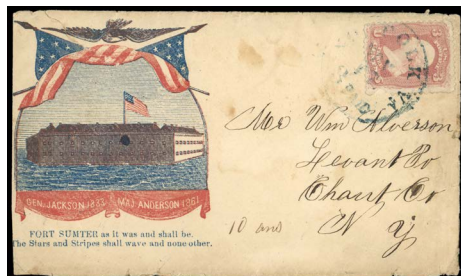 GEN. JACKSON 1833 MAJ. ANDERSON 1861
FORT SUMTER as it was and shall be.
The Stars and Stripes shall wave and none other.
VA
Wm Alverson
Levant Po
Chaut Co
N Y
10 ans